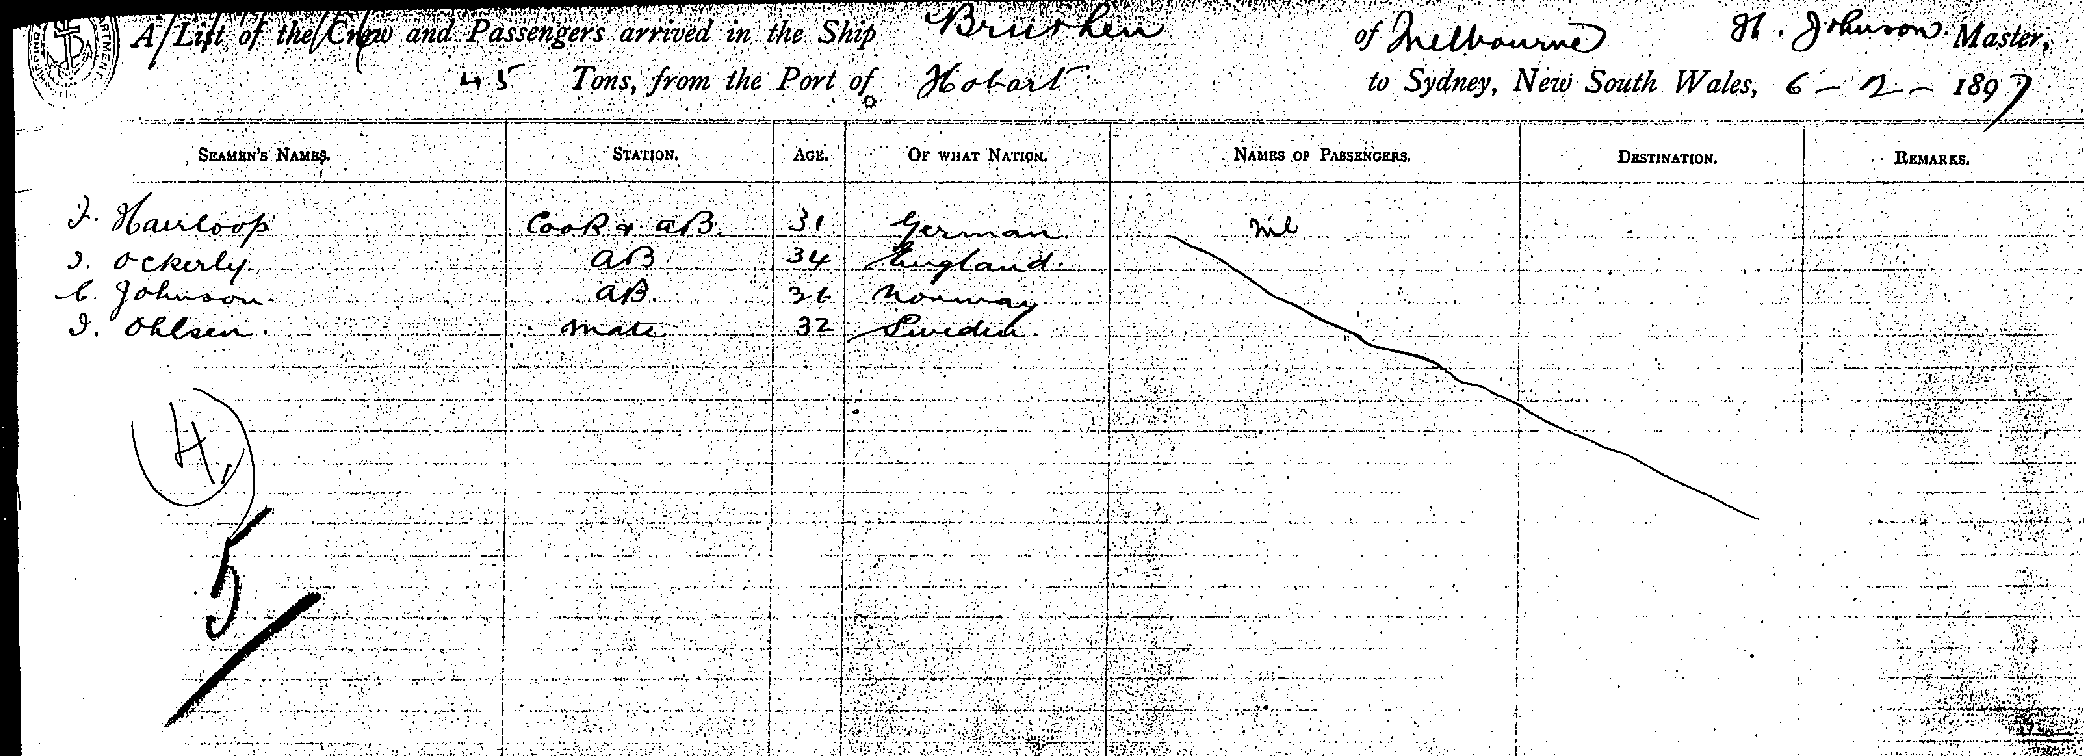 A List of the Crew and Passengers arrived in the Ship Brushen of Melbourne H. Johnson Master,
45 Tons, from the Port of Hobart to Sydney, New South Wales, 6-2-1897
SEAMEN'S NAMES. STATION. AGE. OF WHAT NATION. NAMES OF PASSENGERS. DESTINATION. REMARKS.
J. Hairloop Cook & AB. 31 German nil
J. Ockerly AB 34 England.
C. Johnson. AB. 36 Norway
J. Ohlsen. Mate 32 Sweden.
4
5